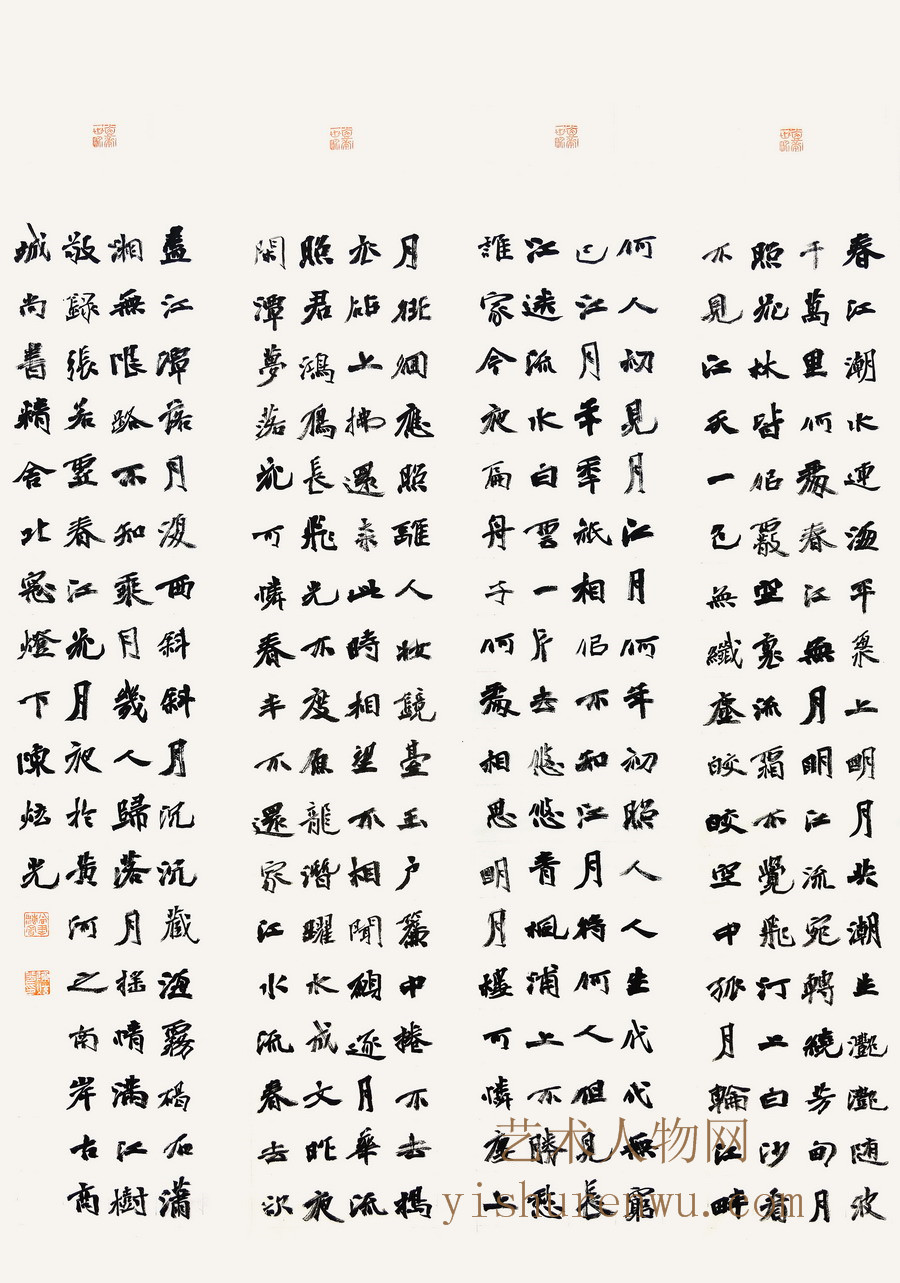 春江潮水連海平上明月共潮生灩灩随波
千萬里何處春江無月明江流宛轉繞芳甸月
照花林皆似霰空裏流霜不覺飛汀上白沙看
不見江天一色無纖塵皎皎空中孤月輪江畔
何人初見月江月何年初照人人生代代無窮
已江月年年祇相似不知江月待何人但見長
江送流水白雲一片去悠悠青楓浦上不勝愁
誰家今夜扁舟子何處相思明月樓可憐上
月徘徊應照離人妝鏡臺玉户簾中捲不去搗
衣砧上拂還來此時相望不相聞願逐月華流
照君鴻鴈長飛光不度魚龍潛躍水成文昨夜
閑潭夢落花可憐春半不還家江水流春去欲
盡江潭落月復西斜斜月沉沉藏海霧碣石瀟
湘無限路不知乘月幾人歸落月摇情滿江樹
敬録張若虚春江花月夜於黄河之南岸古商
城尚書精舍北窗燈下陳炫光
艺术人物网
yishurenwu.com